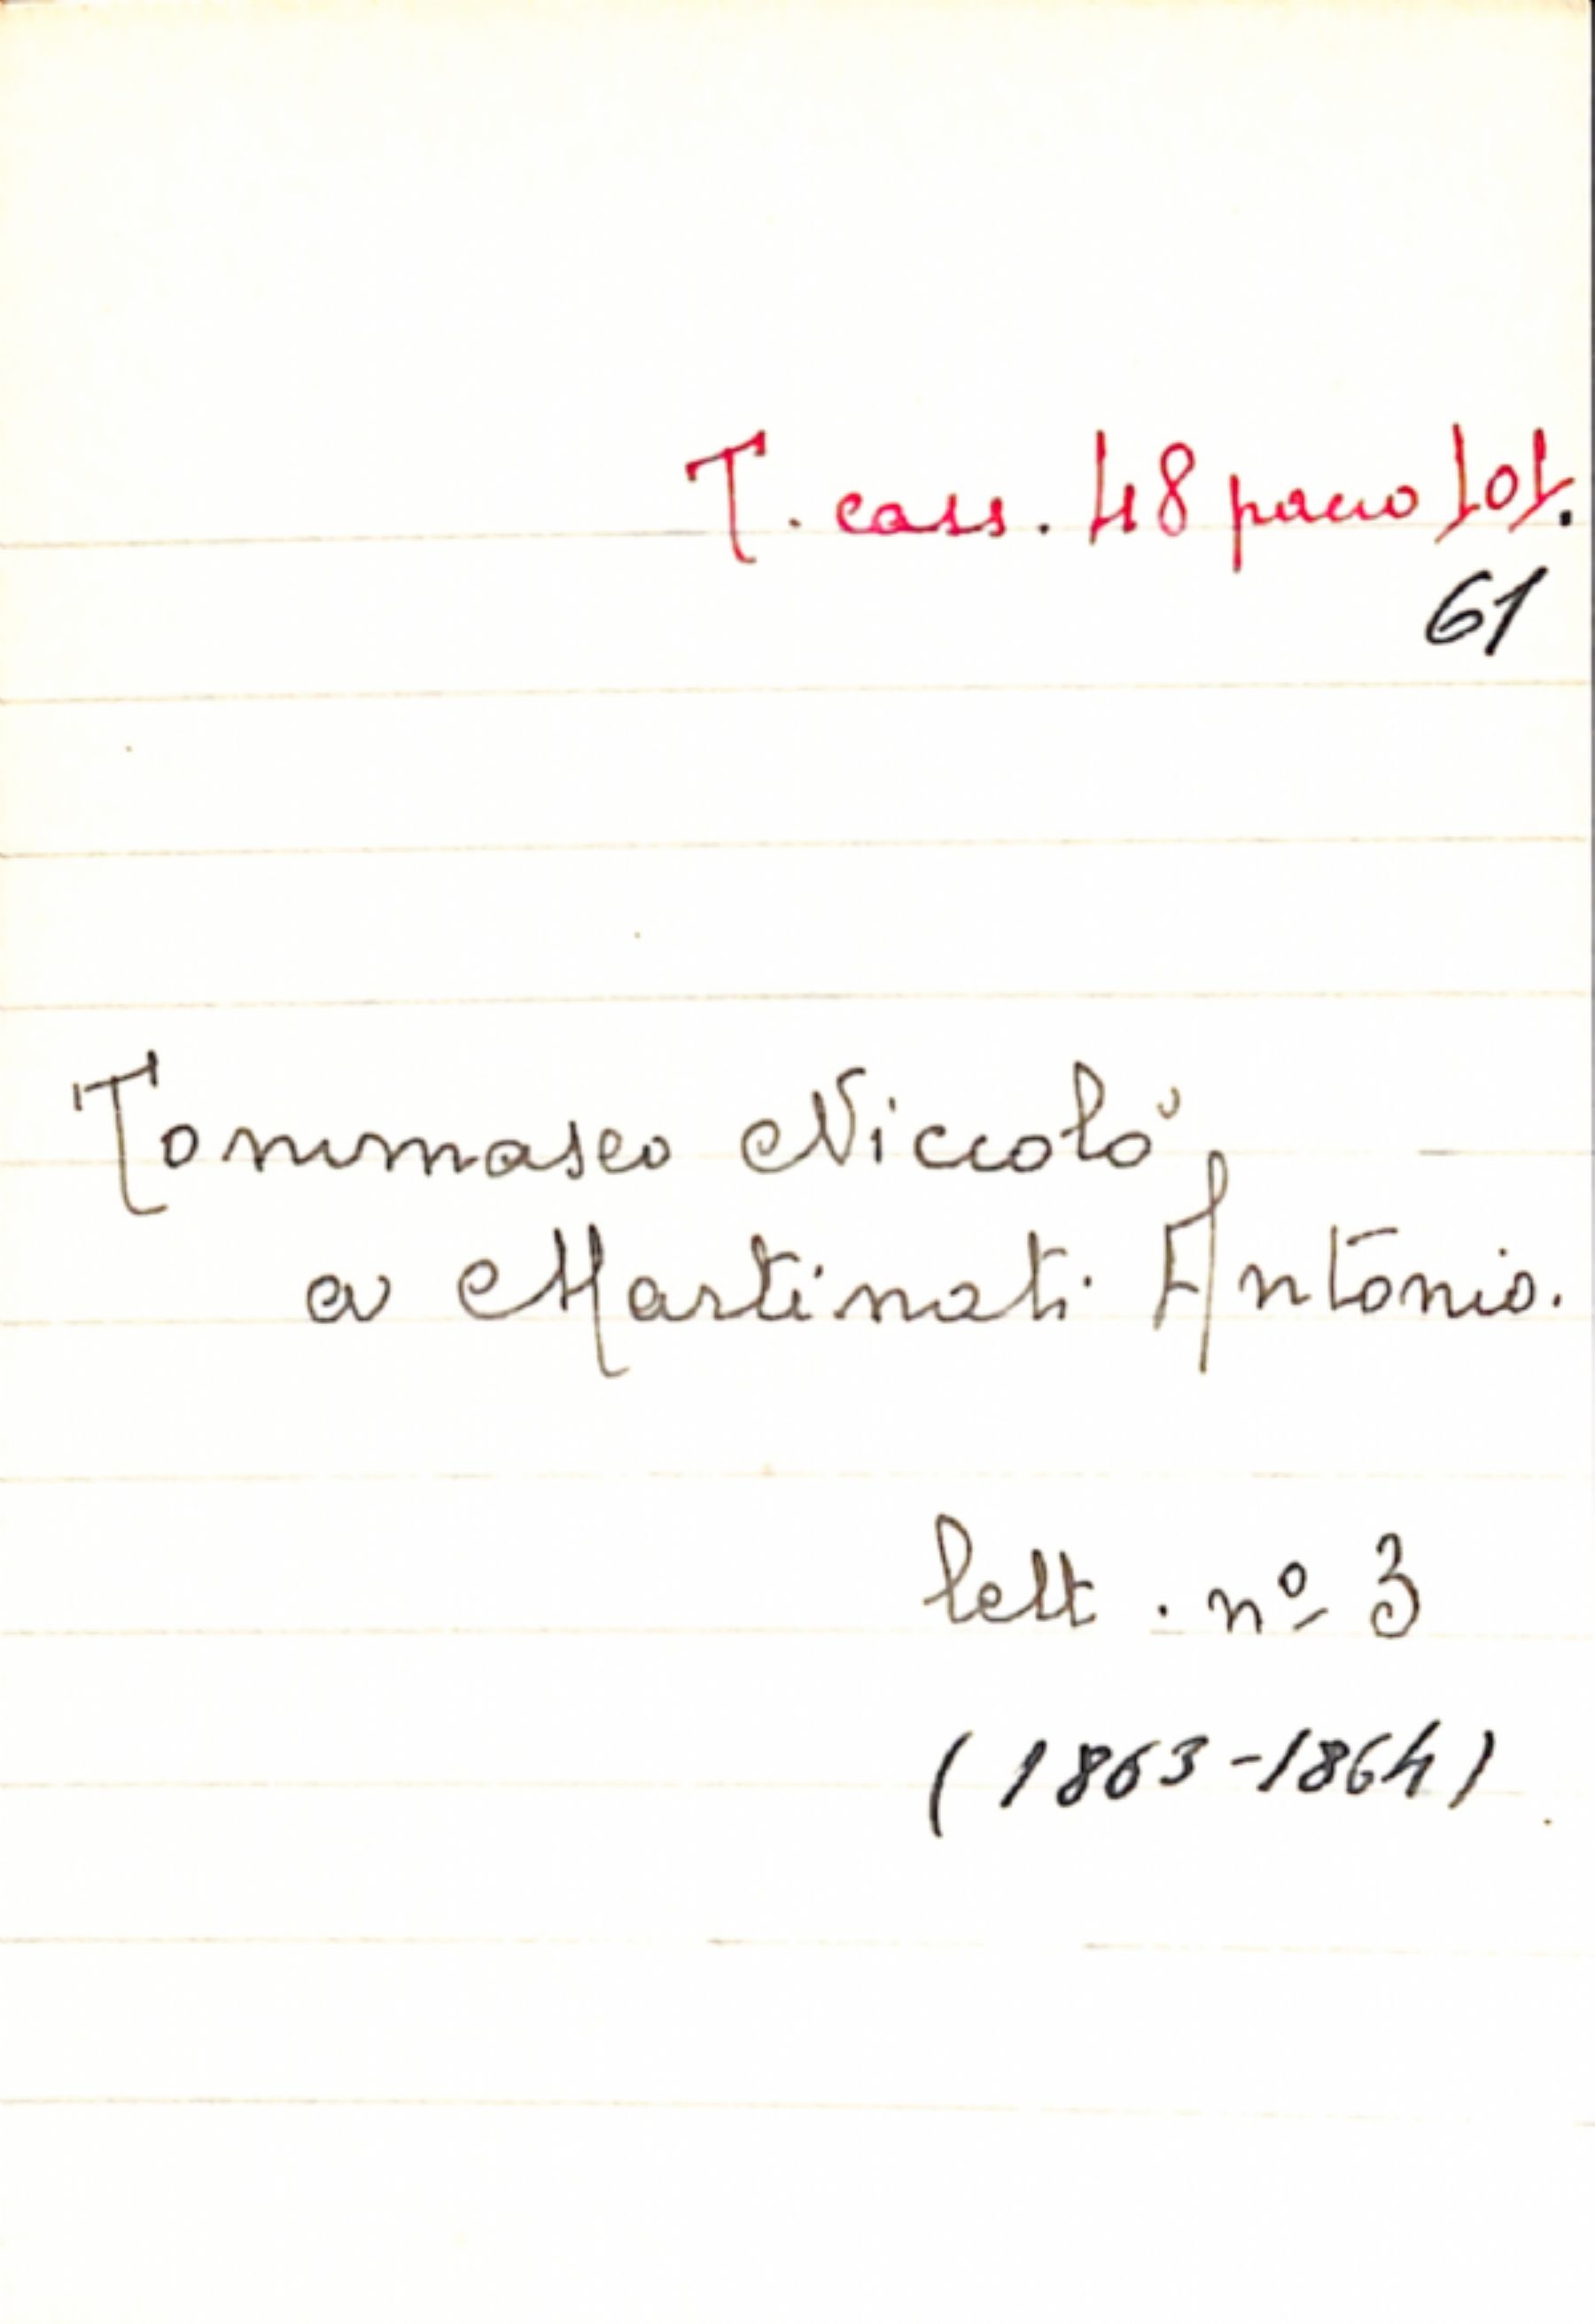 T. cass. 48 pacco 101.
61
Tommaseo Niccolò,
a Martinati Antonio.
lett. nº 3
(1863-1864)